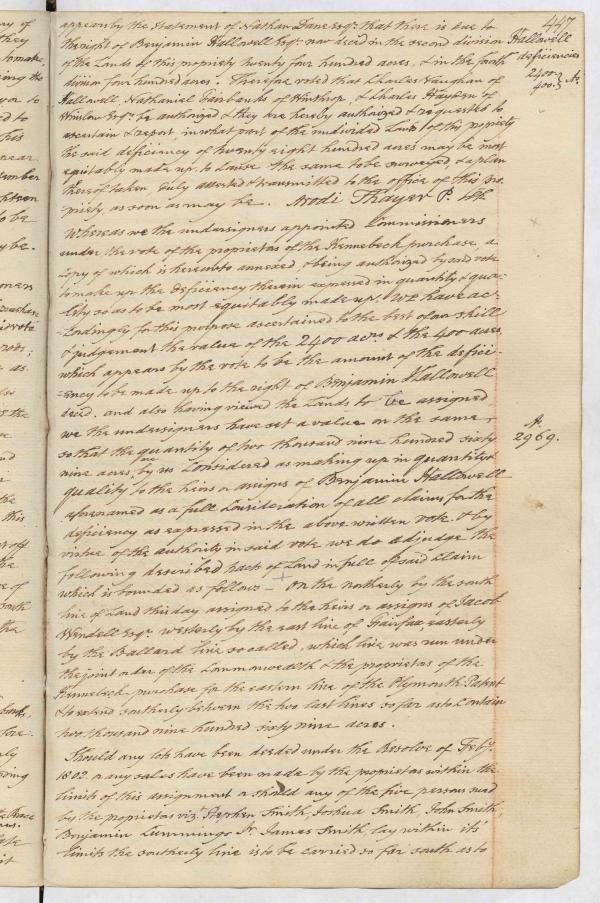 447
appears by the Statement of Nathan Dane Esqr. that there is due to
the right of Benjamin Hallowell Esqr. now decd in the second division
Hallowell
deficiencies
2400
400 } As.
of the Lands of this propriety twenty four hundred acres, & in the fourth
division four hundred acres. Therefore voted that Charles Vaughan of
Hallowell, Nathaniel Fairbanks of Winthrop, & Charles Hayden of
Winslow Esqrs. be authorized & they are hereby authorized & requested to
ascertain & report, in what part of the undivided Lands of this propriety
the said deficiency of twenty eight hundred acres may be most
equitably made up, to cause the same to be surveyed & a plan
thereof taken duly attested & transmitted to the office of this pro-
priety, as soon as may be. Arodi Thayer P. Clk
Whereas we the undersigners appointed Commissioners
under the vote of the proprietors of the Kennebeck purchase, a
copy of which is hereunto annexed & being authorized by said vote
to make up the deficiency therein expressed in quantity & qua-
lity so as to be most equitably made up. We have ac-
-cordingly for this purpose ascertained to the best of our skill
& judgement the value of the 2400 acrs. & the 400 acres,
which appears by the vote to be the amount of the defici-
-ency to be made up to the right of Benjamin Hallowell
decd. and also having viewed the Lands to be assigned,
we the undersigners have set a value on the same,
so that the quantity of two thousand nine hundred sixty
As.
2969.
nine acres, are by us Considered as making up in quantity &
quality to the heirs or assigns of Benjamin Hallowell
aforenamed as a full Consideration of all claims for the
deficiency as expressed in the above written vote. & by
virtue of the authority in said vote we do adjudge the
following described tract of Land in full of said claim
which is bounded as follows – On the northerly by the south
line of Land this day assigned to the heirs or assigns of Jacob
Wendell Esqr. westerly by the east line of Fairfax, easterly
by the Ballard line so called, which line was run under
the joint order of the Commonwealth & the proprietors of the
Kennebeck purchase for the eastern line of the Plymouth Patent
& to extend southerly between the two last lines so far as to Contain
two thousand nine hundred sixty nine acres.
Should any lots have been deeded under the Resolve of Feby.
1802 or any sales have been made by the proprietors within the
limits of this assignment or should any of the five persons used
by the proprietors vizt. Stephen Smith, Joshua Smith, John Smith,
Benjamin Cummings Jr. James Smith, lay within its
limits the southerly line is to be carried so far south as to